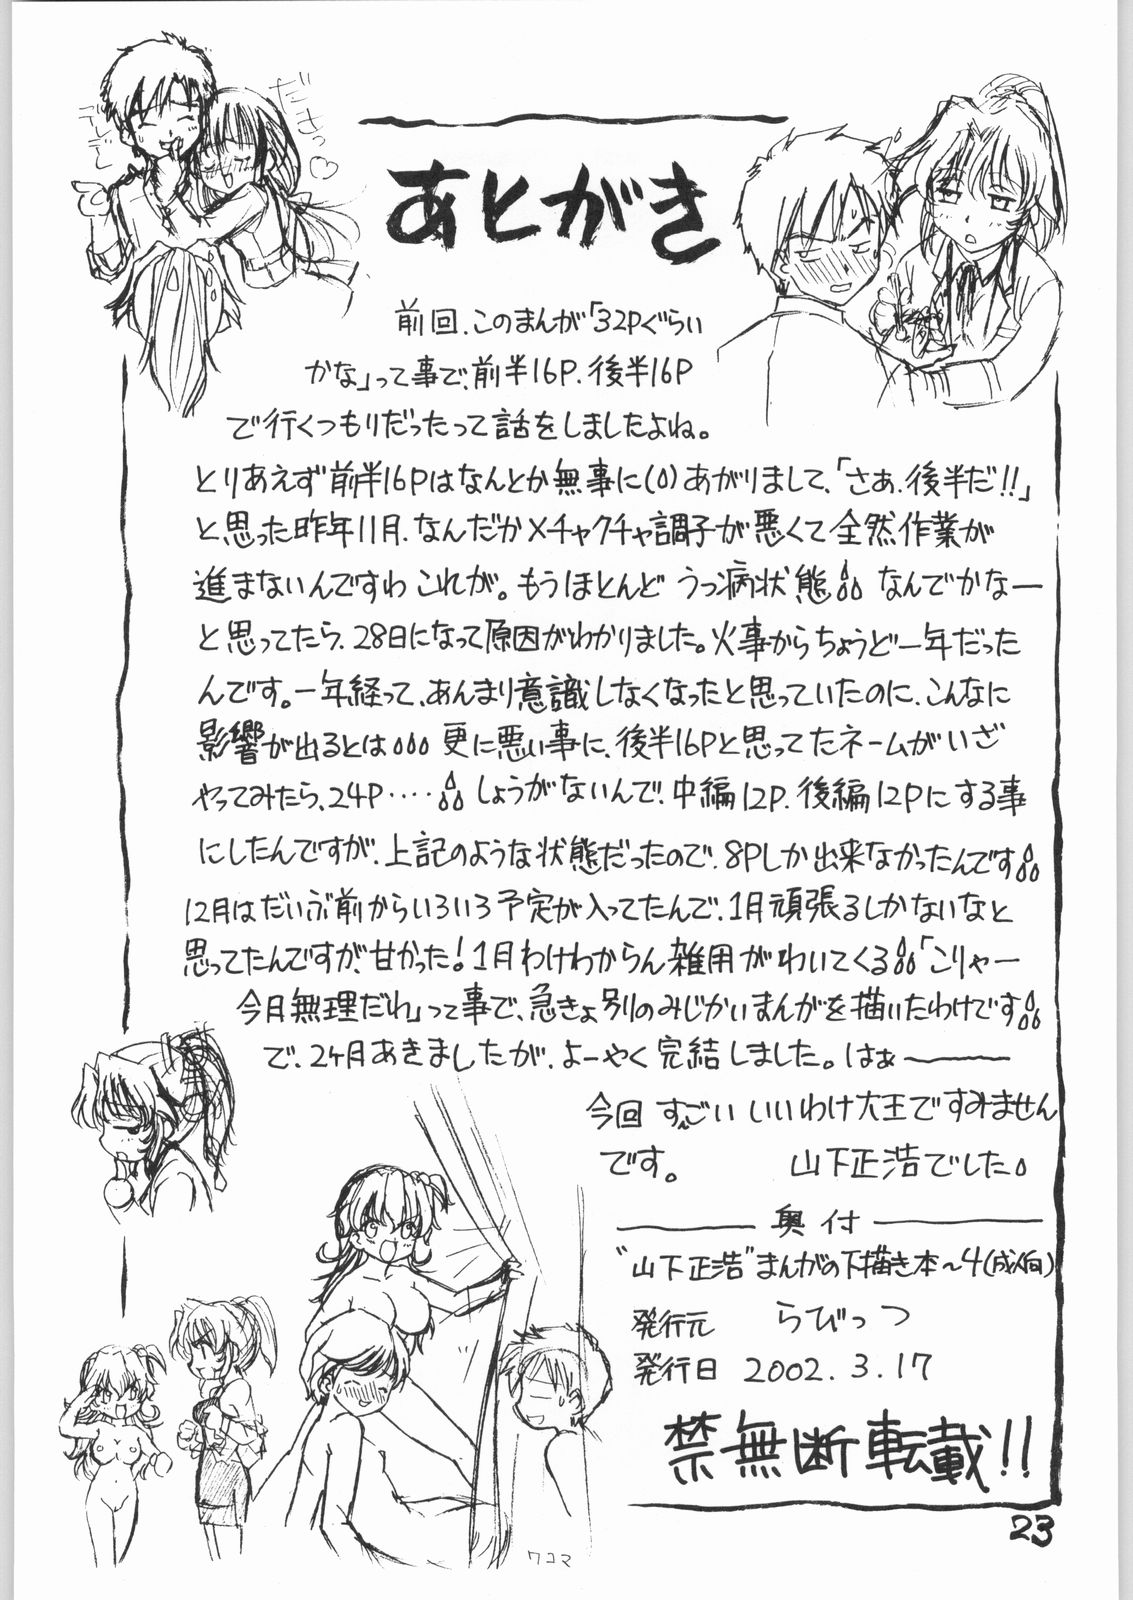 デレデレ
だきっ♡
あとがき
前回、このまんが「32Pぐらい
かな」って事で、前半16P、後半16P
で行くつもりだったって話をしましたよね。
とりあえず前半16Pはなんとか無事に()あがりまして、「さあ、後半だ!!」
と思った昨年11月、なんだかメチャクチャ調子が悪くて全然作業が
進まないんですわ これが。もうほとんど うつ病状態 なんでかなー
と思ってたら、28日になって原因がわかりました。火事からちょうど一年だった
んです。一年経って、あんまり意識しなくなったと思っていたのに、こんなに
影響が出るとは 更に悪い事に、後半16Pと思ってたネームがいざ
やってみたら、24P‥‥ しょうがないんで、中編12P、後編12Pにする事
にしたんですが、上記のような状態だったので、8Pしか出来なかったんです
12月はだいぶ前からいろいろ予定が入ってたんで、1月頑張るしかないなと
思ってたんですが、甘かった!1月わけわからん雑用がわいてくる「こりゃー
今月無理だわ」って事で、急きょ別のみじかいまんがを描いたわけです
で、2ヶ月あきましたが、よーやく完結しました。はぁ〜
今回 すっごい いいわけ大王ですみません
です。 山下正浩でした。
奥付
"山下正浩"まんがの下描き本〜4(成人向)
発行元 らびっつ
発行日 2002.3.17
禁無断転載!!
23
ワコマ